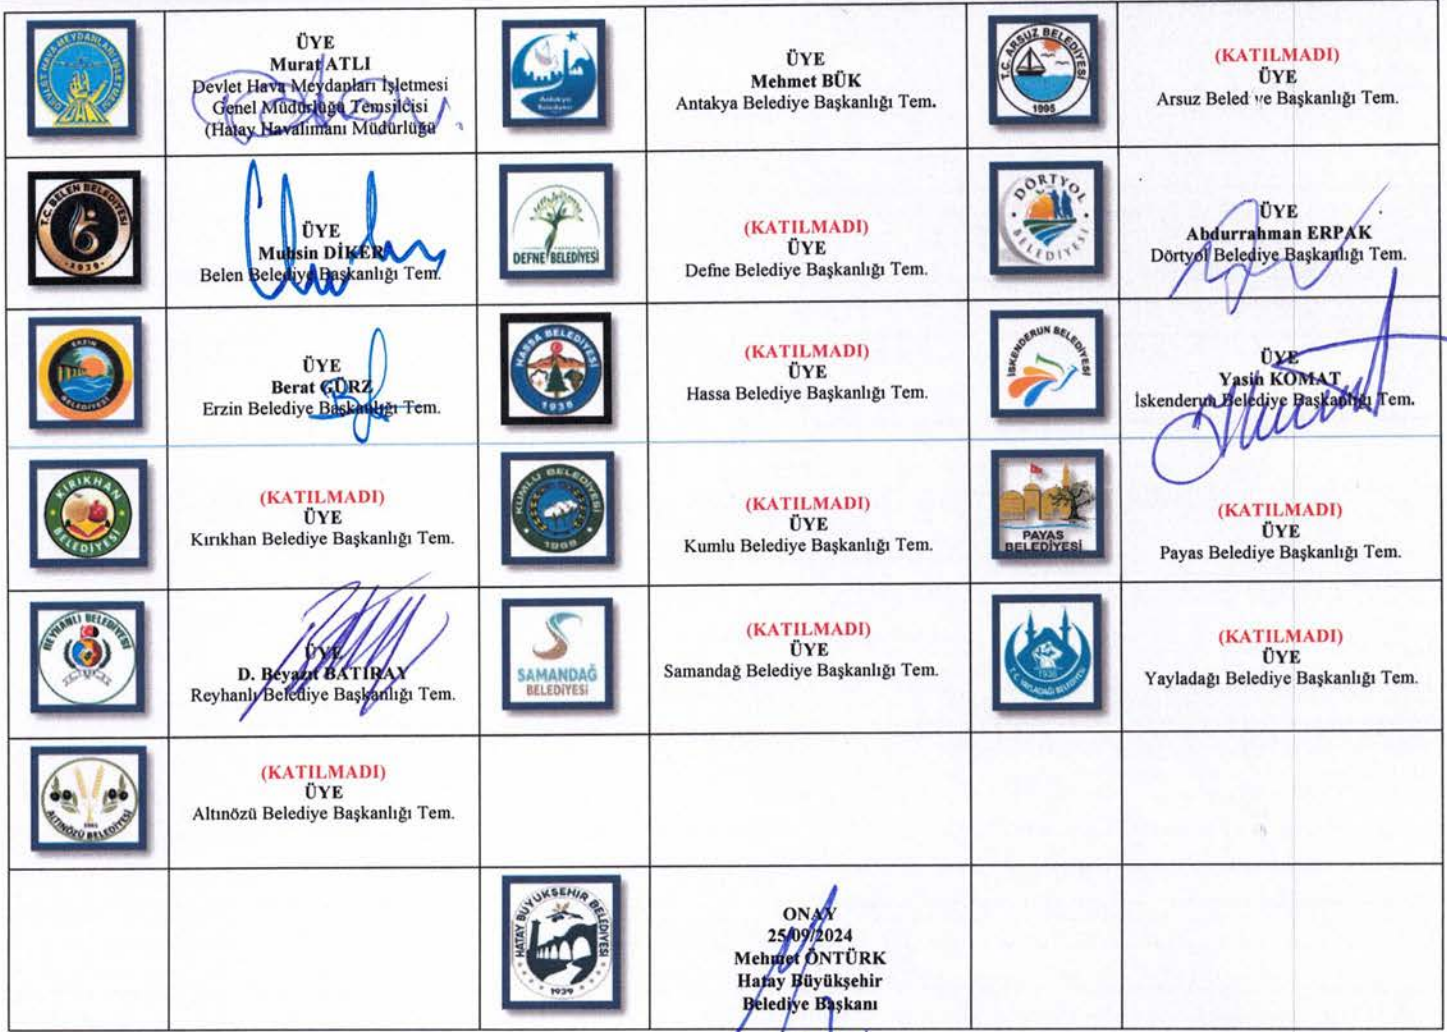 DEVLET HAVA MEYDANLARI İŞLETMESİ
ÜYE
Murat ATLI
Devlet Hava Meydanları İşletmesi
Genel Müdürlüğü Temsilcisi
(Hatay Havalimanı Müdürlüğü
Antakya
Belediyesi
ÜYE
Mehmet BÜK
Antakya Belediye Başkanlığı Tem.
T.C. ARSUZ BELEDİYESİ
1995
(KATILMADI)
ÜYE
Arsuz Beled ye Başkanlığı Tem.
T.C. BELEN BELEDİYESİ
1939
ÜYE
Muhsin DİKER
Belen Belediye Başkanlığı Tem.
DEFNE BELEDİYESİ
(KATILMADI)
ÜYE
Defne Belediye Başkanlığı Tem.
DÖRTYOL
BELEDİYESİ
ÜYE
Abdurrahman ERPAK
Dörtyol Belediye Başkanlığı Tem.
ERZİN
BELEDİYESİ
ÜYE
Berat GÜRZ
Erzin Belediye Başkanlığı Tem.
HASSA BELEDİYESİ
1936
(KATILMADI)
ÜYE
Hassa Belediye Başkanlığı Tem.
İSKENDERUN BELEDİYESİ
ÜYE
Yasin KOMAT
İskenderun Belediye Başkanlığı Tem.
KIRIKHAN
BELEDİYESİ
(KATILMADI)
ÜYE
Kırıkhan Belediye Başkanlığı Tem.
KUMLU BELEDİYESİ
1968
(KATILMADI)
ÜYE
Kumlu Belediye Başkanlığı Tem.
PAYAS
BELEDİYESİ
(KATILMADI)
ÜYE
Payas Belediye Başkanlığı Tem.
REYHANLI BELEDİYESİ
ÜYE
D. Beyazıt BATIRAY
Reyhanlı Belediye Başkanlığı Tem.
SAMANDAĞ
BELEDİYESİ
(KATILMADI)
ÜYE
Samandağ Belediye Başkanlığı Tem.
1936
T.C. YAYLADAĞI BELEDİYESİ
(KATILMADI)
ÜYE
Yayladağı Belediye Başkanlığı Tem.
ALTINÖZÜ BELEDİYESİ
(KATILMADI)
ÜYE
Altınözü Belediye Başkanlığı Tem.
HATAY BÜYÜKŞEHİR BELEDİYESİ
1939
ONAY
25/09/2024
Mehmet ÖNTÜRK
Hatay Büyükşehir
Belediye Başkanı